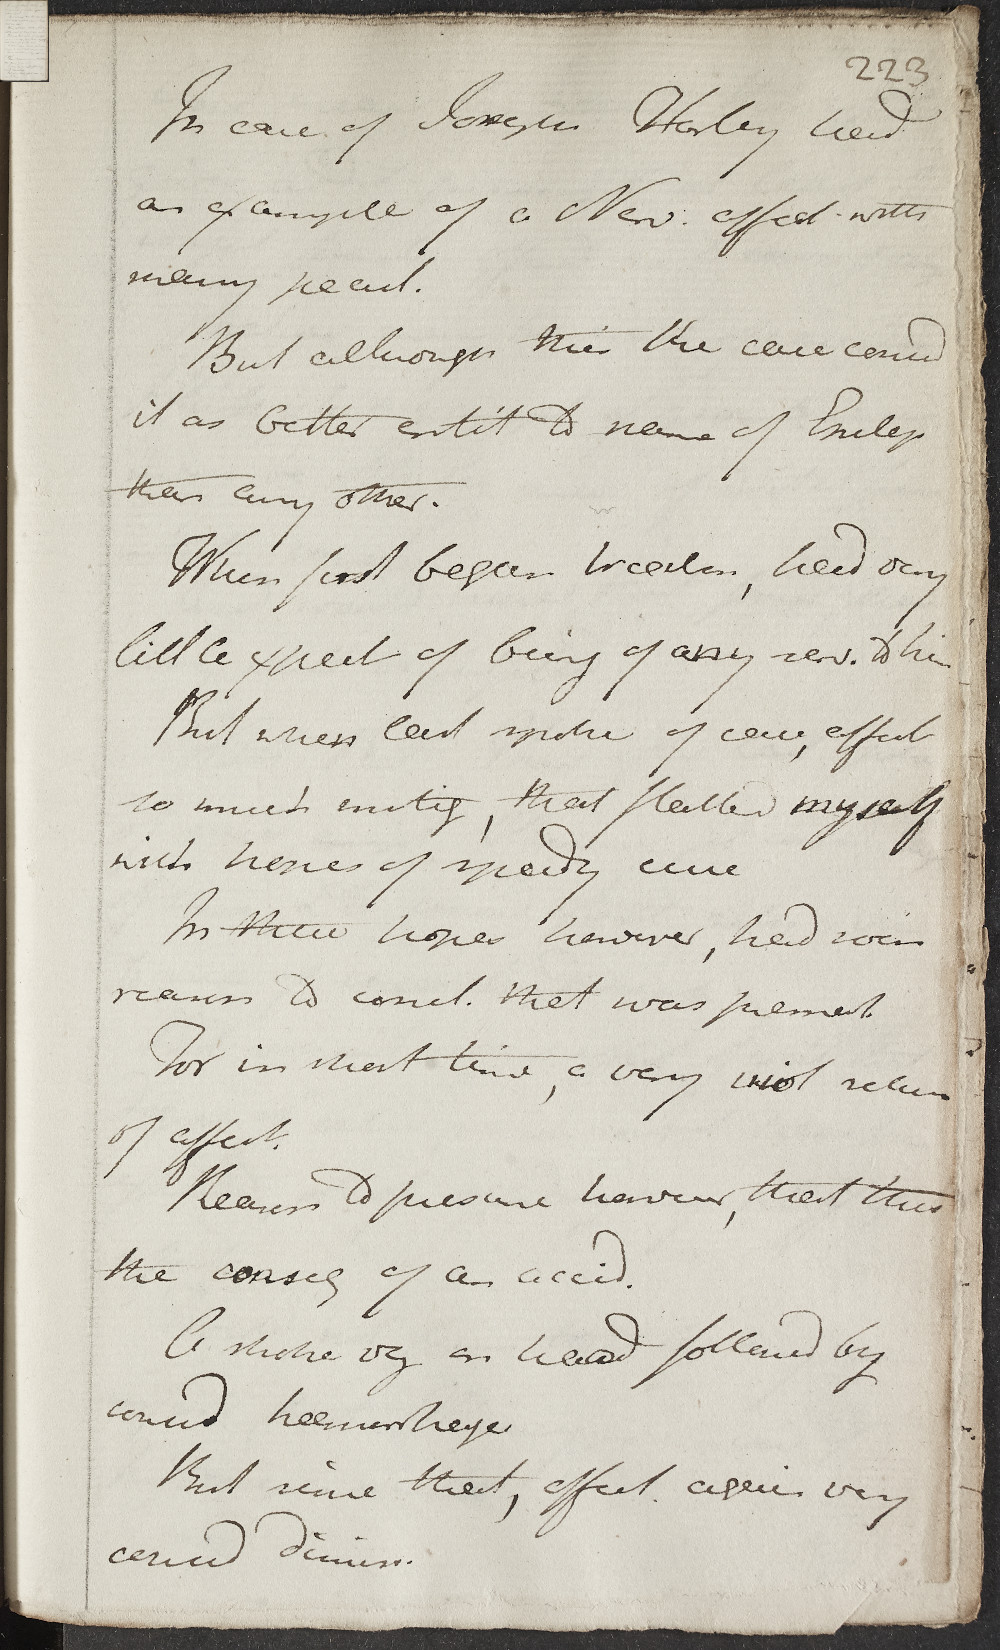 223
In case of Joseph Horley head
an example of a Nerv. affect. with
many pecul.
But although this the case consid
it as better entit to name of Epilep
than any other.
When first began treatm, had very
little expect of being of any serv. to him
But when last spoke of case, affect
so much mitig, that flatterd myself
with hopes of speedy cure
In these hopes however, had soon
reason to concl. that was premat.
For in short time, a very viol return
of affect.
Reason to presume however, that this
the conseq of an accid.
A stroke on head followd by
consid heemorrhage
But since that, affect. again very
consid dimin.